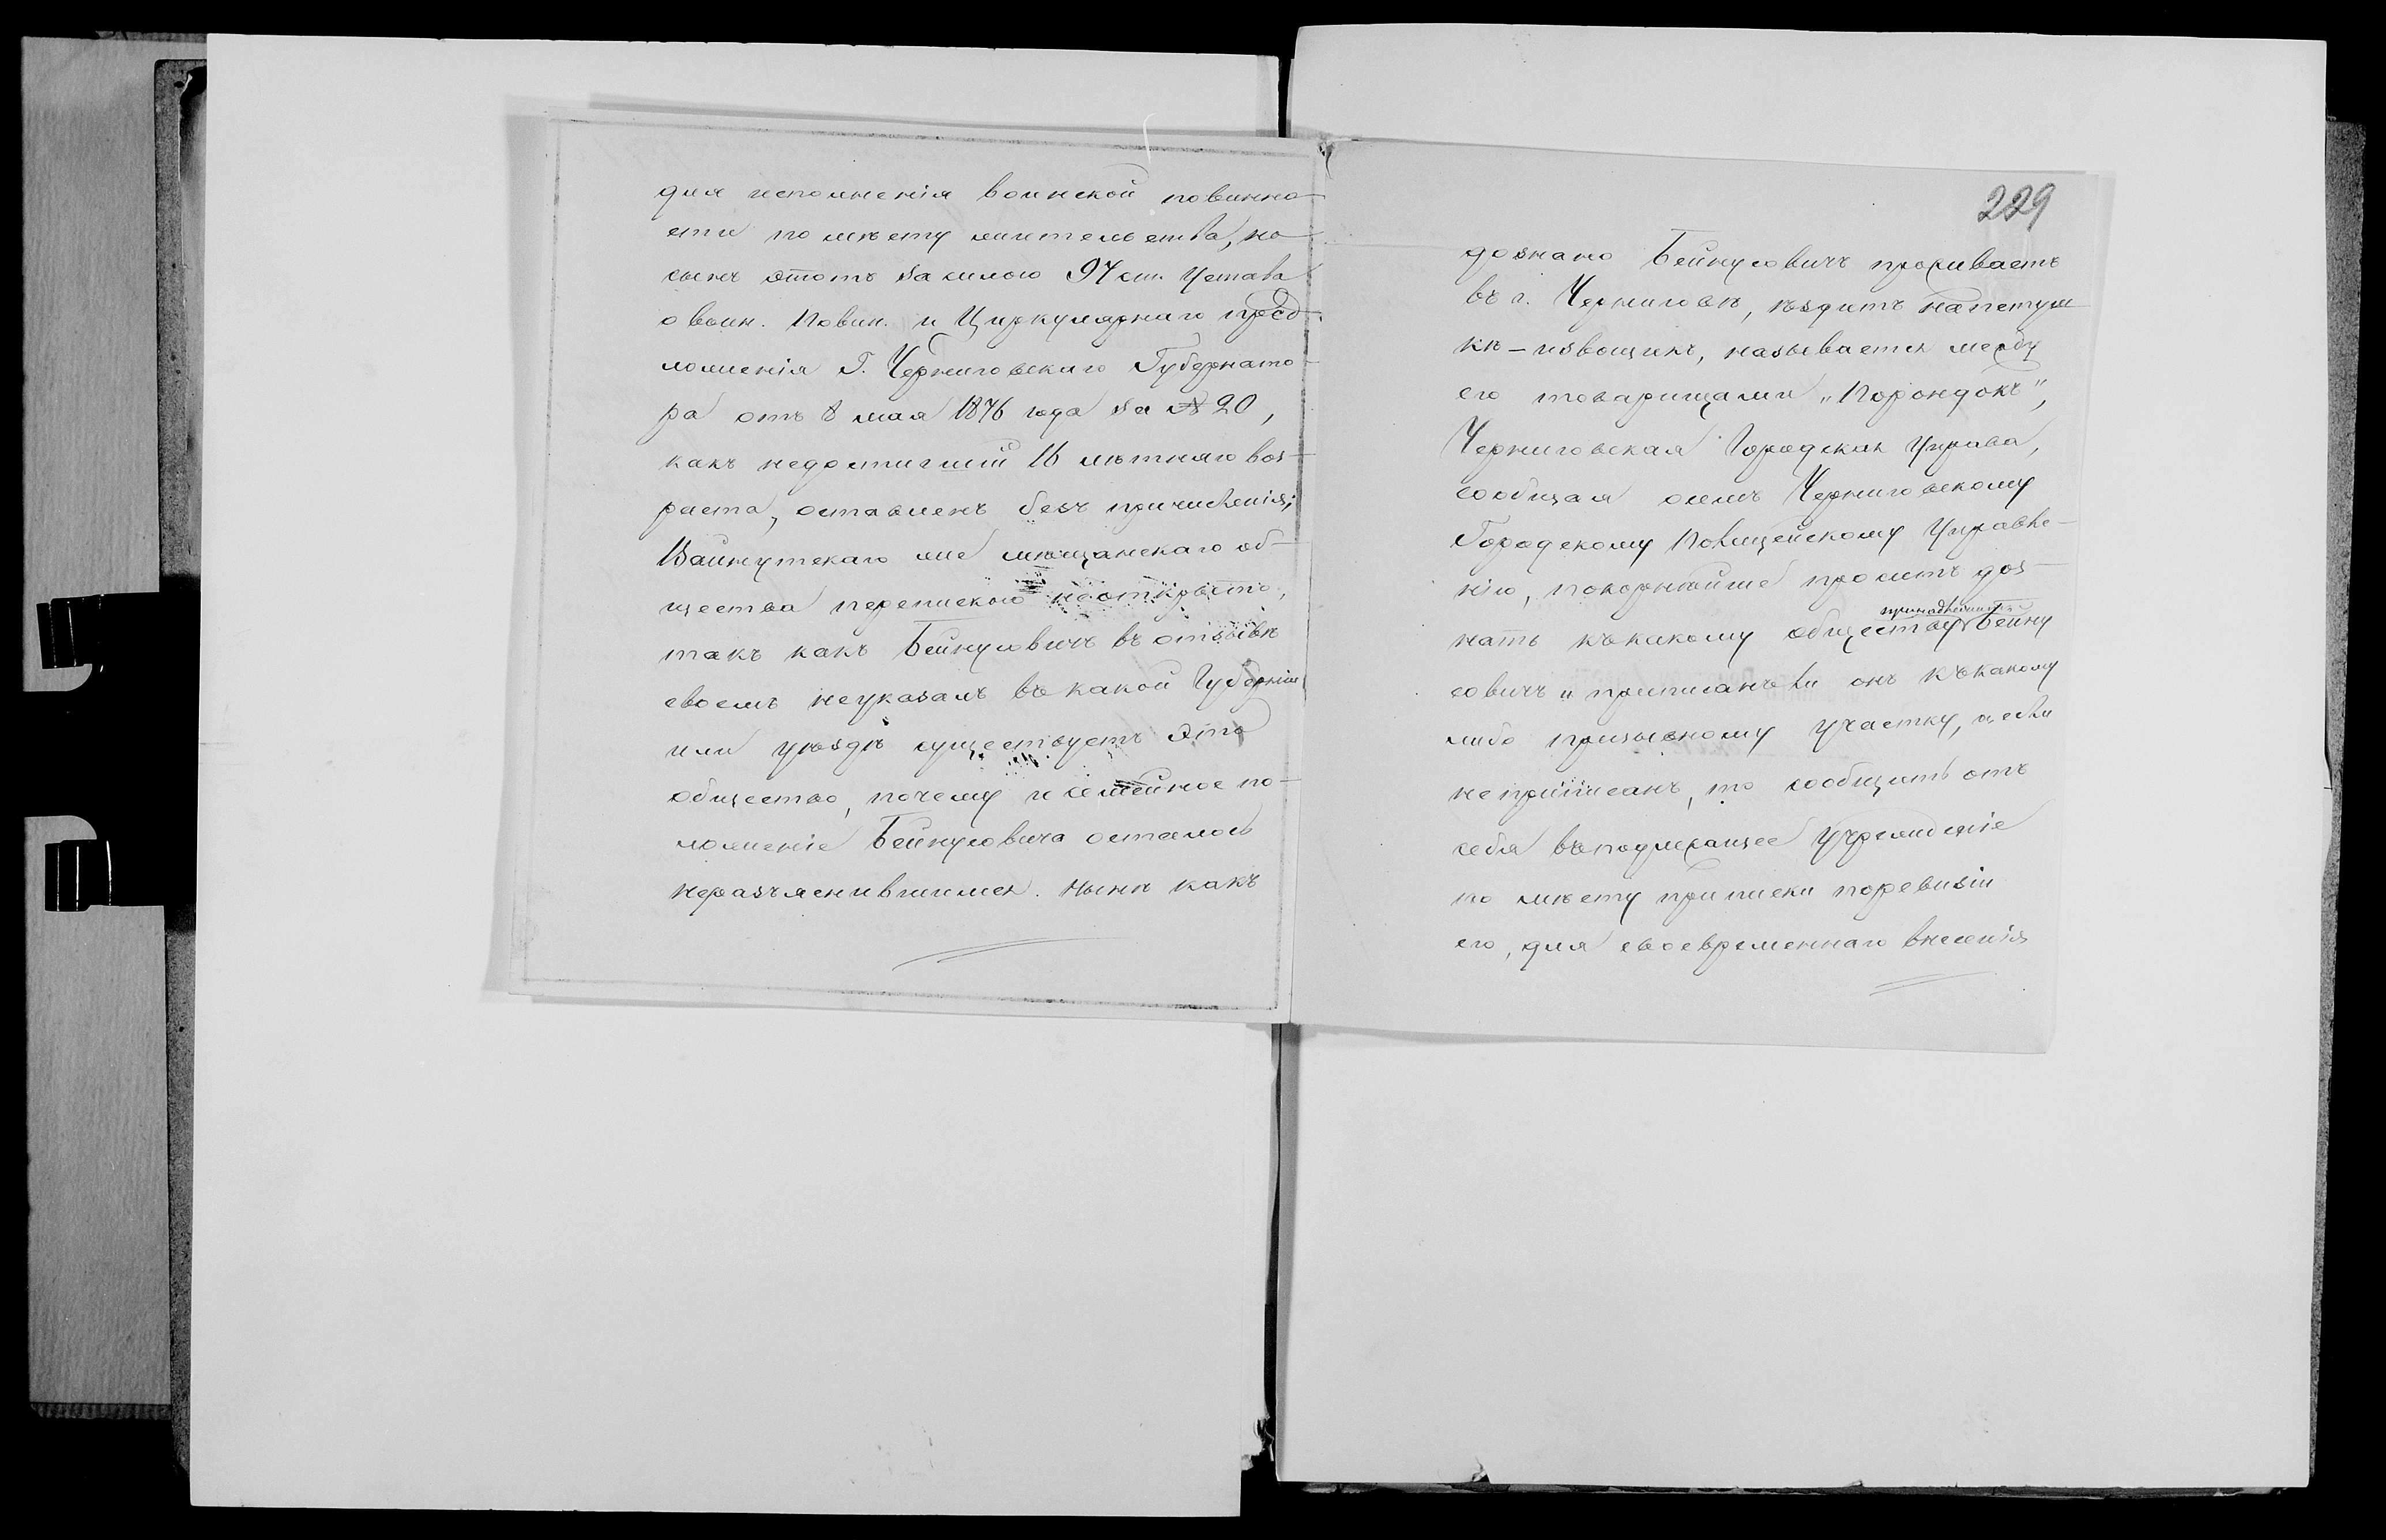 для исполненія воинской повинно-
сти по мѣсту жительства, но
сынъ этотъ за силою 97 ст. Устава
о воин. Повин. и Циркулярнаго пред-
ложенія Г. Черниговскаго Губернато-
ра отъ 8 мая 1876 года за № 20,
какъ недостигшій 16 лѣтняго воз-
раста, оставленъ безъ причисленія;
Вайнутскаго же мѣщанскаго об-
щества перепискою неоткрыто,
такъ какъ Бейнусовичъ въ отзывѣ
своемъ неуказалъ въ какой Губерніи
или уѣздѣ существуетъ это
общество, почему и семейное по-
ложеніе Бейнусовича осталось
неразъяснившимся. Нынѣ какъ
229
дознано Бейнусовичъ проживаетъ
въ г. Черниговѣ, ѣздитъ
кѣ - извощикъ, называется между
его товарищами „Порондокъ",
Черниговская Городская Управа,
сообщая о семъ Черниговскому
Городскому Полицейскому Управле-
нію, покорнѣйше проситъ доз-
принадлежитъ
нать къ какому обществу Бейну
совичъ и приписанъ ли онъ къ какому
либо призывному участку, а если
неприписанъ, то сообщить отъ
себя въ подлежащее учрежденіе
по мѣсту приписки по ревизіи
его, для своевременнаго внесенія